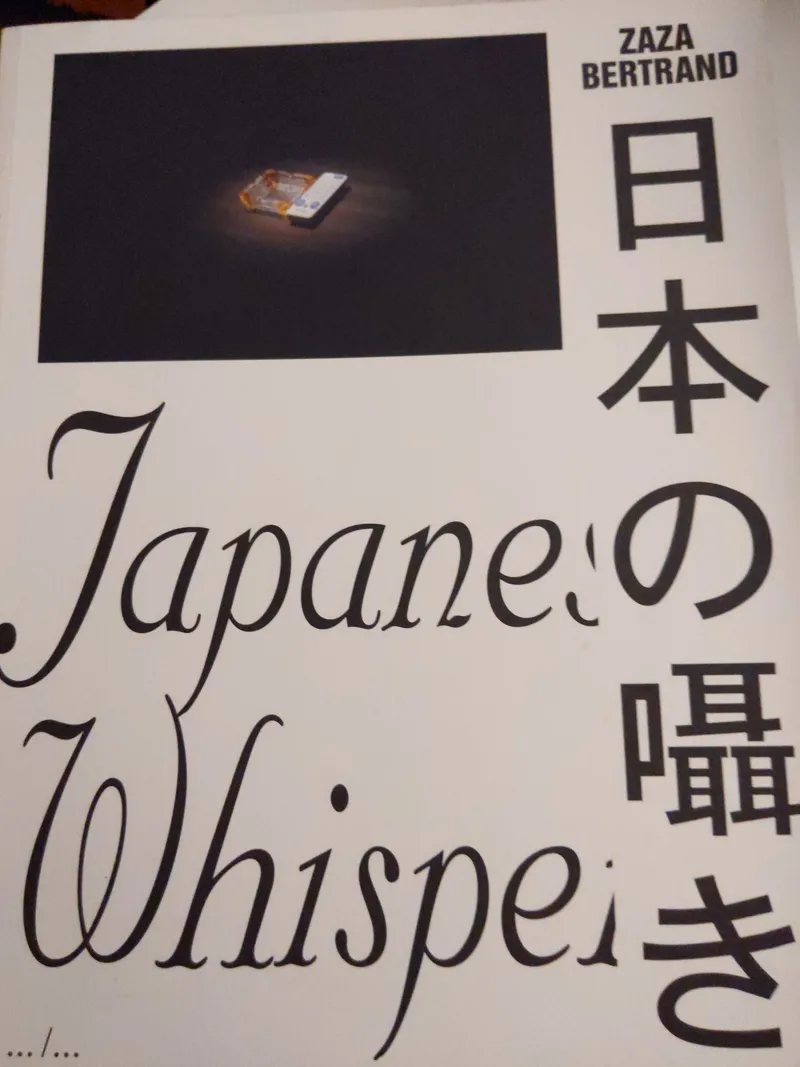 ZAZA
BERTRAND
日本の囁き
Japanes
Whisper
... / ...